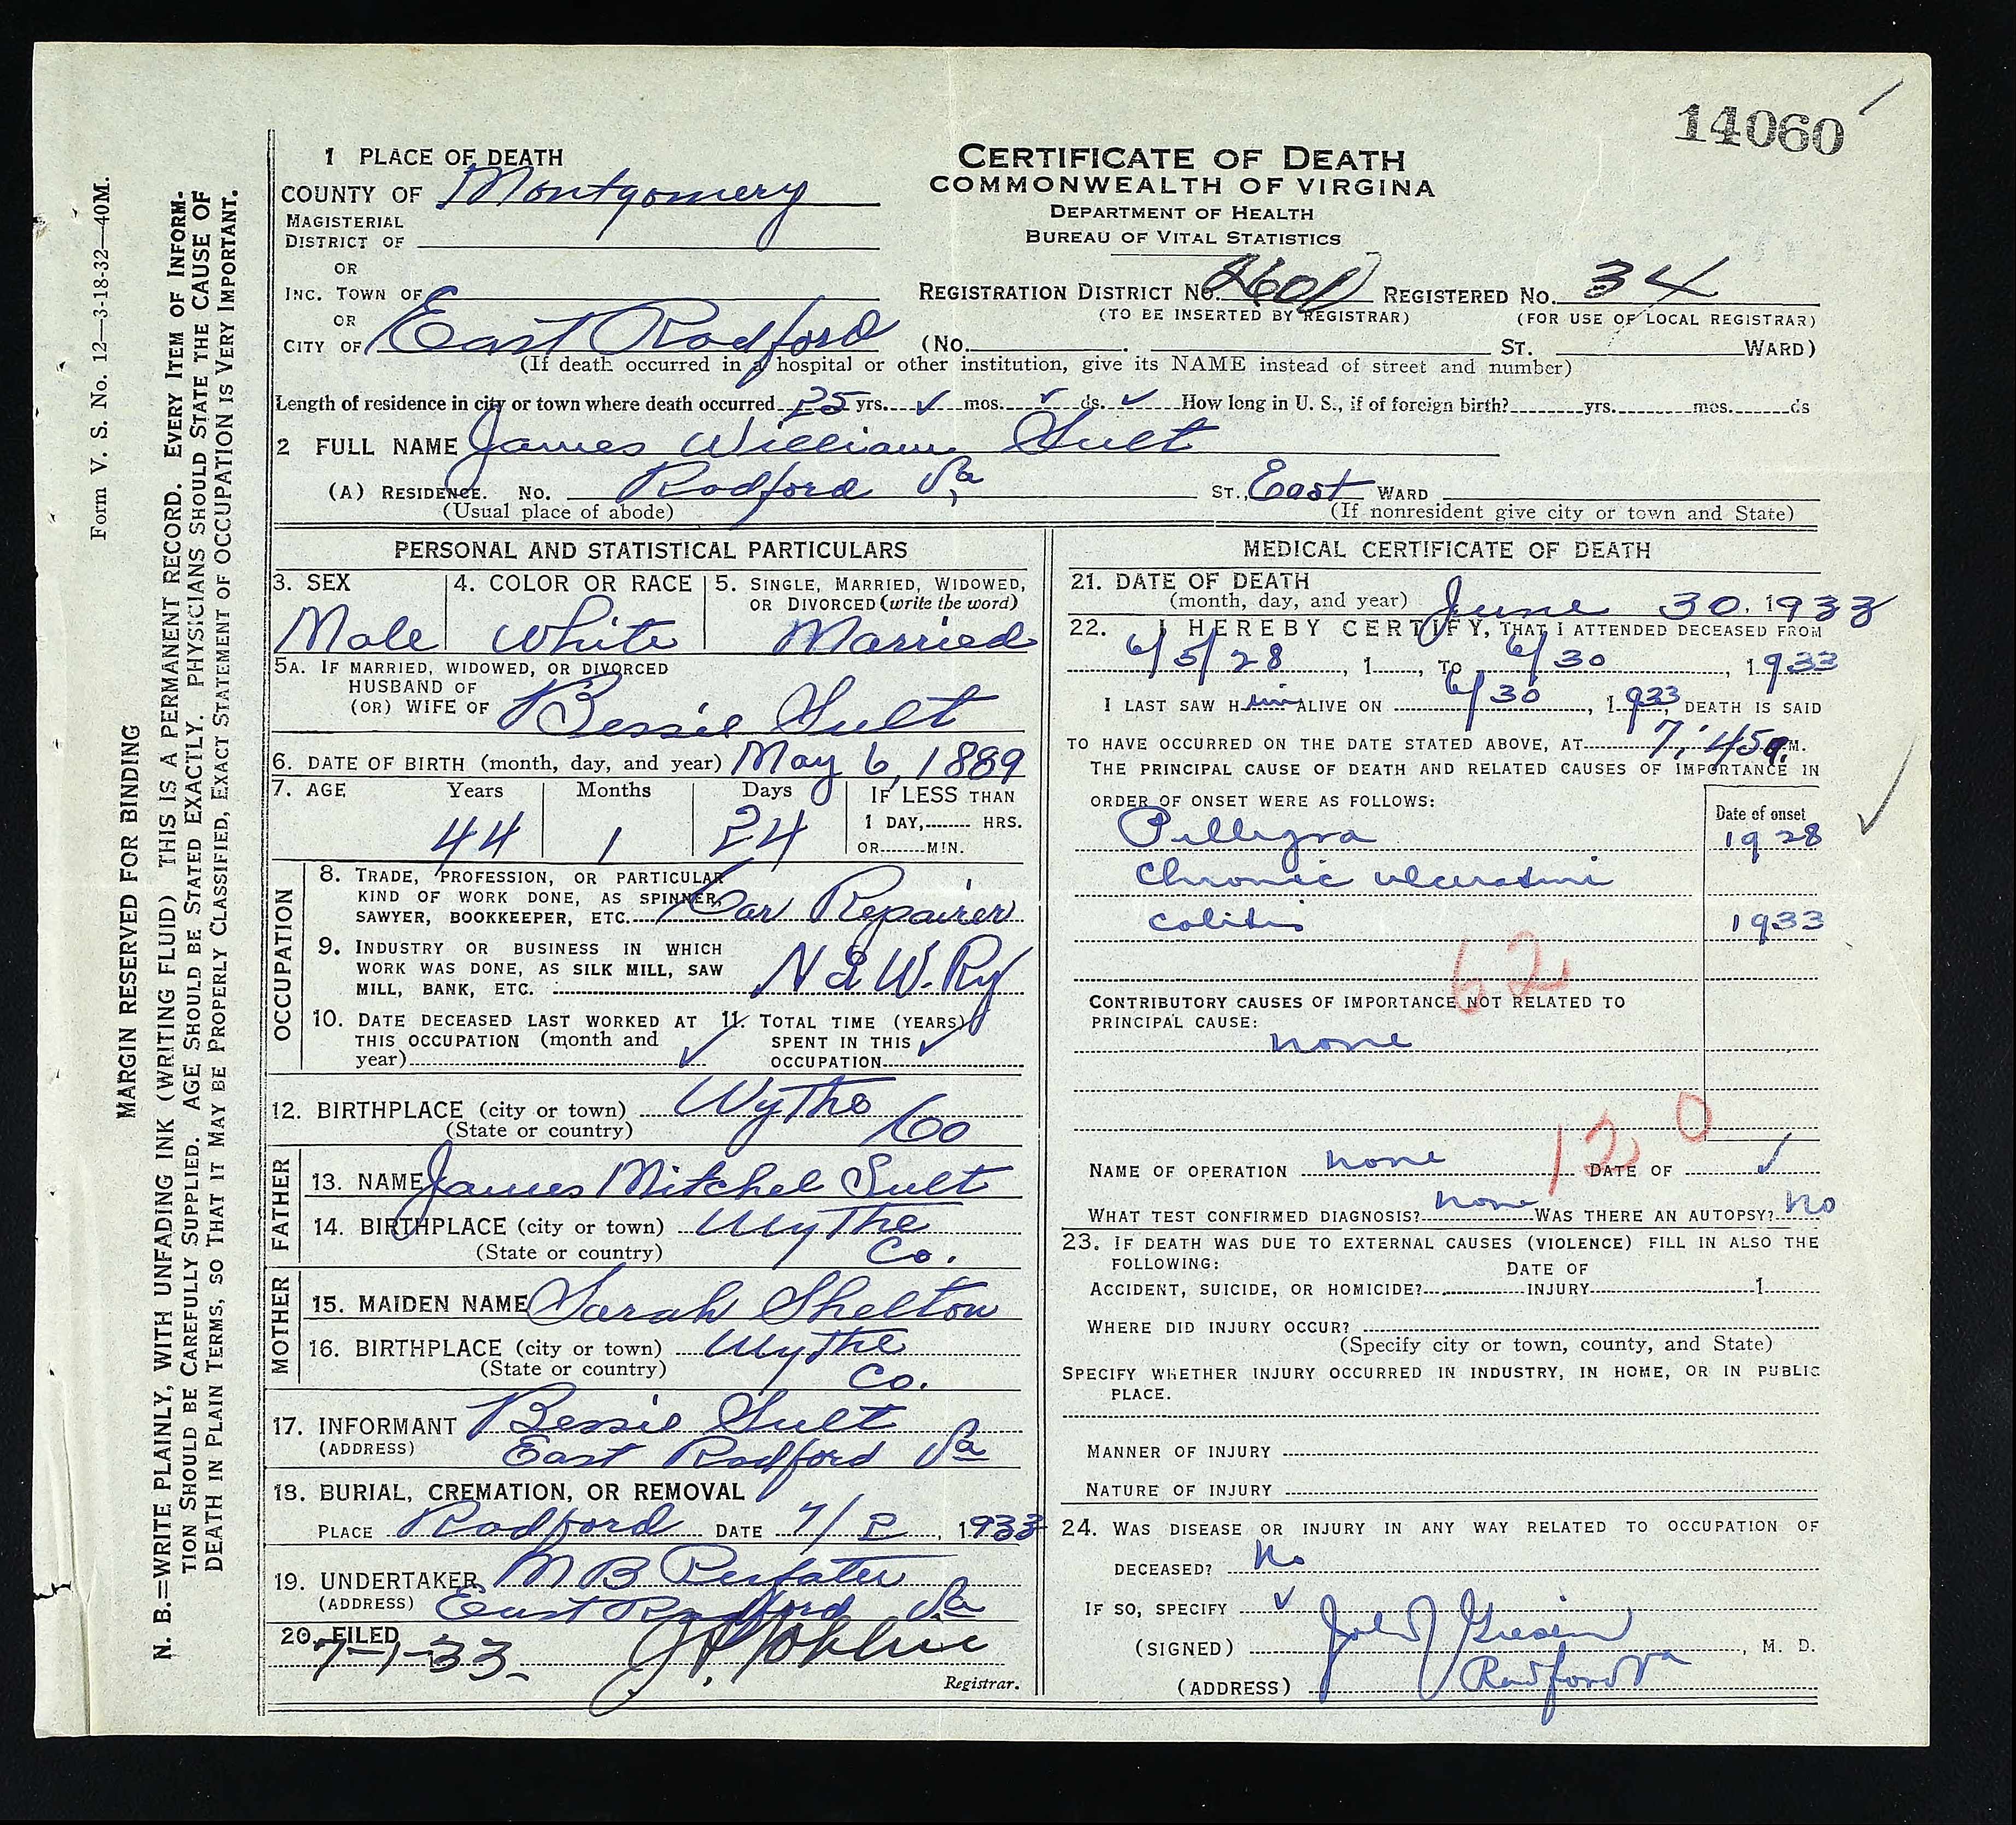 14060
1 PLACE OF DEATH
COUNTY OF Montgomery
MAGISTERIAL
DISTRICT OF
OR
INC. TOWN OF
OR
CITY OF East Radford
CERTIFICATE OF DEATH
COMMONWEALTH OF VIRGINA
DEPARTMENT OF HEALTH
BUREAU OF VITAL STATISTICS
REGISTRATION DISTRICT No. 2601 REGISTERED No. 34
(TO BE INSERTED BY REGISTRAR) (FOR USE OF LOCAL REGISTRAR)
(No. ST. WARD)
(If death occurred in a hospital or other institution, give its NAME instead of street and number)
Length of residence in city or town where death occurred 25 yrs. ✓ mos. ✓ ds. ✓ How long in U. S., if of foreign birth? yrs. mos. ds
2 FULL NAME James William Sult
(A) RESIDENCE. No. Radford Va ST., East WARD
(Usual place of abode) (If nonresident give city or town and State)
PERSONAL AND STATISTICAL PARTICULARS
3. SEX 4. COLOR OR RACE 5. SINGLE, MARRIED, WIDOWED,
OR DIVORCED (write the word)
Male White Married
5A. IF MARRIED, WIDOWED, OR DIVORCED
HUSBAND OF
(OR) WIFE OF Bessie Sult
6. DATE OF BIRTH (month, day, and year) May 6, 1889
7. AGE Years Months Days IF LESS THAN
1 DAY, HRS.
44 1 24 OR MIN.
OCCUPATION
8. TRADE, PROFESSION, OR PARTICULAR
KIND OF WORK DONE, AS SPINNER,
SAWYER, BOOKKEEPER, ETC. Car Repairer
9. INDUSTRY OR BUSINESS IN WHICH
WORK WAS DONE, AS SILK MILL, SAW
MILL, BANK, ETC. N & W. Ry
10. DATE DECEASED LAST WORKED AT 11. TOTAL TIME (YEARS)
THIS OCCUPATION (month and SPENT IN THIS
year) ✓ OCCUPATION ✓
12. BIRTHPLACE (city or town) Wythe
(State or country) Co
FATHER
13. NAME James Mitchel Sult
14. BIRTHPLACE (city or town) Wythe
(State or country) Co.
MOTHER
15. MAIDEN NAME Sarah Shelton
16. BIRTHPLACE (city or town) Wythe
(State or country) Co.
17. INFORMANT Bessie Sult
(ADDRESS) East Radford Va
18. BURIAL, CREMATION, OR REMOVAL
PLACE Radford DATE 7/2, 1933
19. UNDERTAKER M B Perfater
(ADDRESS) East Radford Va
20. FILED
7-1-33
Registrar.
MEDICAL CERTIFICATE OF DEATH
21. DATE OF DEATH
(month, day, and year) June 30, 1933
22. I HEREBY CERTIFY, THAT I ATTENDED DECEASED FROM
6/5/28, 1, TO 6/30, 1933
I LAST SAW Him ALIVE ON 6/30, 1933, DEATH IS SAID
TO HAVE OCCURRED ON THE DATE STATED ABOVE, AT 7:45 M.
THE PRINCIPAL CAUSE OF DEATH AND RELATED CAUSES OF IMPORTANCE IN
ORDER OF ONSET WERE AS FOLLOWS: Date of onset
Pellegra 1928
Chronic ulcerative
colitis 1933
62
CONTRIBUTORY CAUSES OF IMPORTANCE NOT RELATED TO
PRINCIPAL CAUSE:
none
120
NAME OF OPERATION none DATE OF ✓
WHAT TEST CONFIRMED DIAGNOSIS? none WAS THERE AN AUTOPSY? no
23. IF DEATH WAS DUE TO EXTERNAL CAUSES (VIOLENCE) FILL IN ALSO THE
FOLLOWING: DATE OF
ACCIDENT, SUICIDE, OR HOMICIDE? INJURY 1
WHERE DID INJURY OCCUR?
(Specify city or town, county, and State)
SPECIFY WHETHER INJURY OCCURRED IN INDUSTRY, IN HOME, OR IN PUBLIC
PLACE.
MANNER OF INJURY
NATURE OF INJURY
24. WAS DISEASE OR INJURY IN ANY WAY RELATED TO OCCUPATION OF
DECEASED? No
IF SO, SPECIFY ✓
(SIGNED) , M. D.
(ADDRESS) Radford Va
Form V. S. No. 12—3-18-32—40M.
MARGIN RESERVED FOR BINDING
N. B.=WRITE PLAINLY, WITH UNFADING INK (WRITING FLUID) THIS IS A PERMANENT RECORD. EVERY ITEM OF INFORM-
TION SHOULD BE CAREFULLY SUPPLIED. AGE SHOULD BE STATED EXACTLY. PHYSICIANS SHOULD STATE THE CAUSE OF
DEATH IN PLAIN TERMS, SO THAT IT MAY BE PROPERLY CLASSIFIED, EXACT STATEMENT OF OCCUPATION IS VERY IMPORTANT.